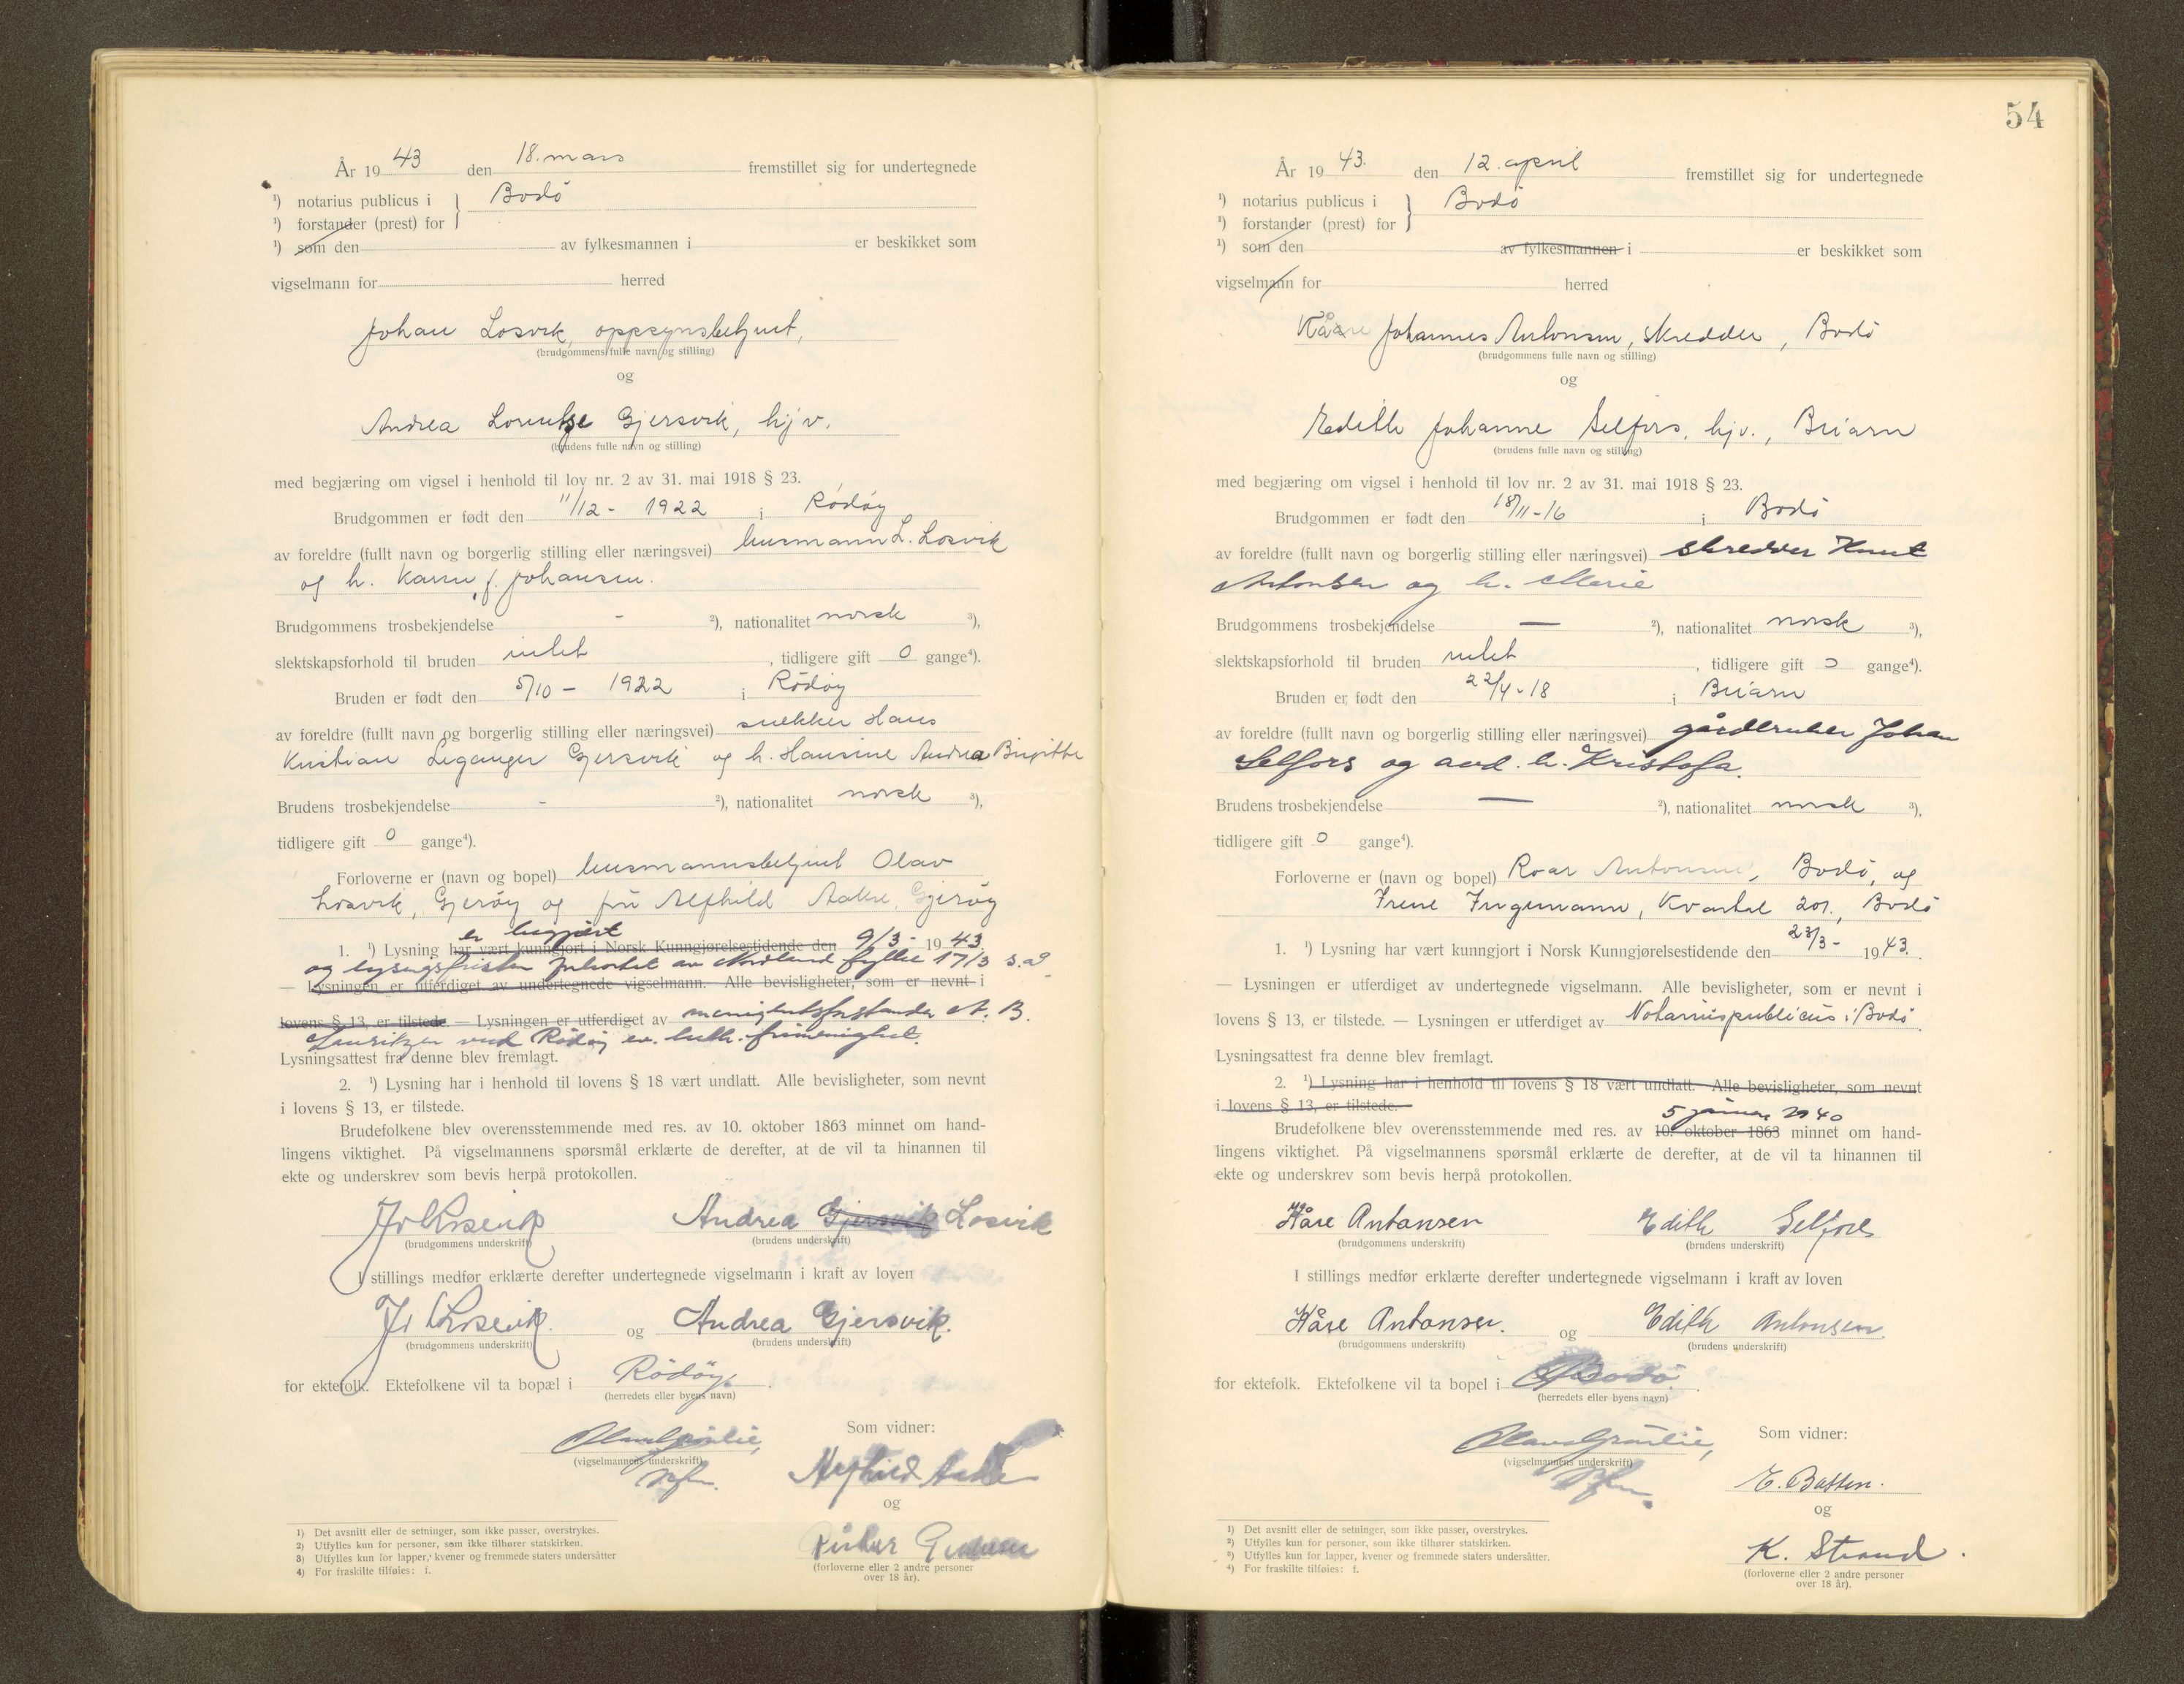 År 19 43 den 18. mars fremstillet sig for undertegnede
¹) notarius publicus i } Bodö
¹) forstander (prest) for
¹) som den av fylkesmannen i er beskikket som
vigselmann for herred
Johan Losvik, oppsynsbetjent,
(brudgommens fulle navn og stilling)
og
Andrea Lorentse Gjersvik, hjv.
(brudens fulle navn og stilling)
med begjæring om vigsel i henhold til lov nr. 2 av 31. mai 1918 § 23.
Brudgommen er født den 11/12 - 1922 i Rödöy
av foreldre (fullt navn og borgerlig stilling eller næringsvei) husmann L. Losvik
og h. Karen f. Johansen.
Brudgommens trosbekjendelse - ²), nationalitet norsk ³),
slektskapsforhold til bruden intet, tidligere gift 0 gange⁴).
Bruden er født den 5/10 - 1922 i Rödöy
av foreldre (fullt navn og borgerlig stilling eller næringsvei) snekker Hans
Kristian Leganger Gjersvik og h. Hansine Andrea Birgitte
Brudens trosbekjendelse - ²), nationalitet norsk ³),
tidligere gift 0 gange⁴).
Forloverne er (navn og bopel) husmannsbetjent Olav
Losvik, Gjeröy og fru Alfhild Aakre, Gjeröy
er begjært
1. ¹) Lysning har vært kunngjort i Norsk Kunngjørelsestidende den 9/3 - 19 43.
og lysingsfristen forkortet av Nordland fylke 17/3 s.å.
— Lysningen er utferdiget av undertegnede vigselmann. Alle bevisligheter, som er nevnt i
lovens § 13, er tilstede. — Lysningen er utferdiget av menighetsforstander A. B.
Lauritzen ved Rödöy ev. luth. frimenighet.
Lysningsattest fra denne blev fremlagt.
2. ¹) Lysning har i henhold til lovens § 18 vært undlatt. Alle bevisligheter, som nevnt
i lovens § 13, er tilstede.
Brudefolkene blev overensstemmende med res. av 10. oktober 1863 minnet om hand-
lingens viktighet. På vigselmannens spørsmål erklærte de derefter, at de vil ta hinannen til
ekte og underskrev som bevis herpå protokollen.
Joh Losvik Andrea Gjersvik Losvik
(brudgommens underskrift) (brudens underskrift)
I stillings medfør erklærte derefter undertegnede vigselmann i kraft av loven
Joh Losvik. og Andrea Gjersvik.
(brudgommens underskrift) (brudens underskrift)
for ektefolk. Ektefolkene vil ta bopæl i Rödöy.
(herredets eller byens navn)
Som vidner:
(vigselmannens underskrift)
Alfhild Aakre
og
(forloverne eller 2 andre personer
over 18 år).
1) Det avsnitt eller de setninger, som ikke passer, overstrykes.
2) Utfylles kun for personer, som ikke tilhører statskirken.
3) Utfylles kun for lapper, kvener og fremmede staters undersåtter
4) For fraskilte tilføies: f.
54
År 19 43. den 12. april fremstillet sig for undertegnede
¹) notarius publicus i } Bodö
¹) forstander (prest) for
¹) som den av fylkesmannen i er beskikket som
vigselmann for herred
Kåre Johannes Antonsen, skredder, Bodö
(brudgommens fulle navn og stilling)
og
Edith Johanne Selfors, hjv., Beiarn
(brudens fulle navn og stilling)
med begjæring om vigsel i henhold til lov nr. 2 av 31. mai 1918 § 23.
Brudgommen er født den 18/11-16 i Bodö
av foreldre (fullt navn og borgerlig stilling eller næringsvei) skredder Knut
Antonsen og h. Marie
Brudgommens trosbekjendelse — ²), nationalitet norsk ³),
slektskapsforhold til bruden intet, tidligere gift 0 gange⁴).
Bruden er født den 22/4-18 i Beiarn
av foreldre (fullt navn og borgerlig stilling eller næringsvei) gårdbruker Johan
Selfors og avd. h. Kristofa.
Brudens trosbekjendelse — ²), nationalitet norsk ³),
tidligere gift 0 gange⁴).
Forloverne er (navn og bopel) Roar Antonsen, Bodö, og
Irene Ingemann, Kvartal 201., Bodö
1. ¹) Lysning har vært kunngjort i Norsk Kunngjørelsestidende den 23/3 - 19 43.
— Lysningen er utferdiget av undertegnede vigselmann. Alle bevisligheter, som er nevnt i
lovens § 13, er tilstede. — Lysningen er utferdiget av Notarius publicus i Bodö
Lysningsattest fra denne blev fremlagt.
2. ¹) Lysning har i henhold til lovens § 18 vært undlatt. Alle bevisligheter, som nevnt
i lovens § 13, er tilstede.
5 januar 1940
Brudefolkene blev overensstemmende med res. av 10. oktober 1863 minnet om hand-
lingens viktighet. På vigselmannens spørsmål erklærte de derefter, at de vil ta hinannen til
ekte og underskrev som bevis herpå protokollen.
Kåre Antonsen Edith Selfors
(brudgommens underskrift) (brudens underskrift)
I stillings medfør erklærte derefter undertegnede vigselmann i kraft av loven
Kåre Antonsen. og Edith Antonsen.
(brudgommens underskrift) (brudens underskrift)
for ektefolk. Ektefolkene vil ta bopel i Bodö.
(herredets eller byens navn)
Som vidner:
(vigselmannens underskrift)
E. Batten.
og
K. Strand.
(forloverne eller 2 andre personer
over 18 år).
¹) Det avsnitt eller de setninger, som ikke passer, overstrykes.
²) Utfylles kun for personer, som ikke tilhører statskirken.
³) Utfylles kun for lapper, kvener og fremmede staters undersåtter.
⁴) For fraskilte tilføies: f.